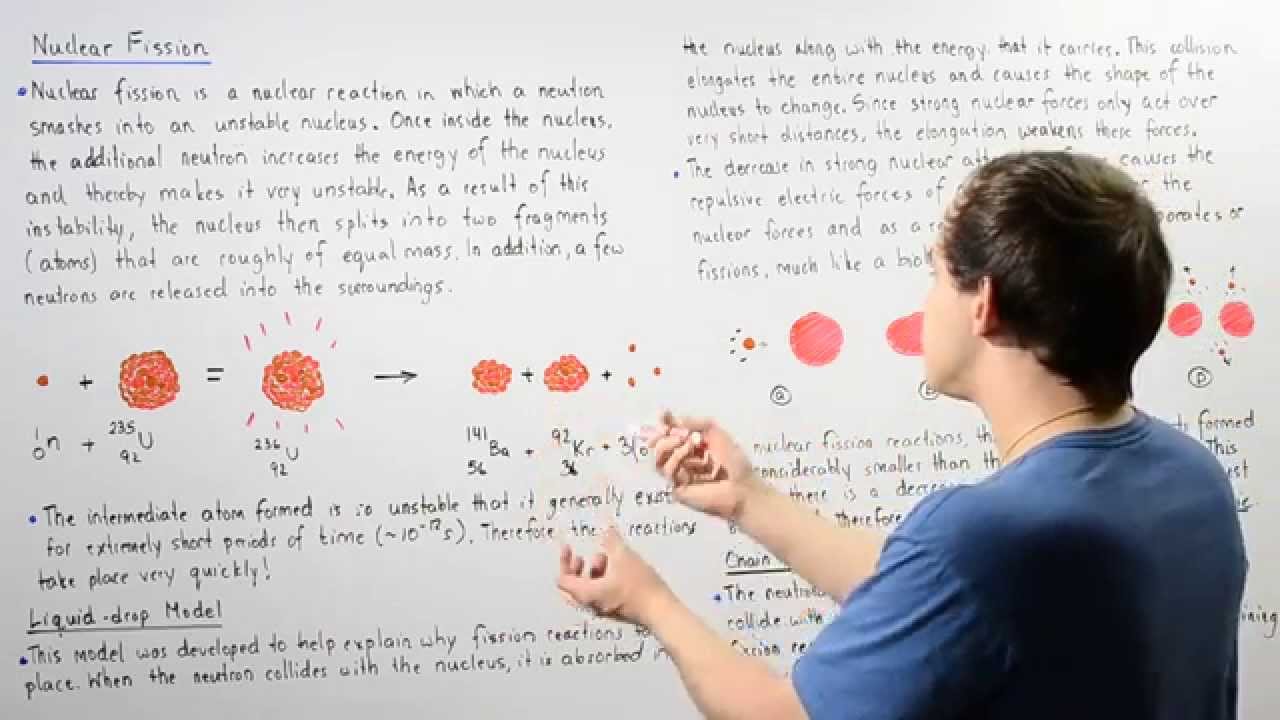 Nuclear Fission
• Nuclear fission is a nuclear reaction in which a neutron
smashes into an unstable nucleus. Once inside the nucleus,
the additional neutron increases the energy of the nucleus
and thereby makes it very unstable. As a result of this
instability, the nucleus then splits into two fragments
(atoms) that are roughly of equal mass. In addition, a few
neutrons are released into the surroundings.
+ = → + +
¹₀n + ²³⁵₉₂U ²³⁶₉₂U ¹⁴¹₅₆Ba + ⁹²₃₆Kr + 3(
• The intermediate atom formed is so unstable that it generally
for extremely short periods of time (~10⁻¹²s). Therefore reactions
take place very quickly!
Liquid-drop Model
• This model was developed to help explain why fission reactions
place. When the neutron collides with the nucleus, it is absorbed
the nucleus along with the energy that it carries. This collision
elongates the entire nucleus and causes the shape of the
nucleus to change. Since strong nuclear forces only act over
very short distances, the elongation weakens these forces.
• The decrease in strong nuclear causes the
repulsive electric forces of the
nuclear forces and as a or
fissions, much like a
a
nuclear fission reactions, formed
considerably smaller than This
there is a
therefore
Chain
• The
collide with